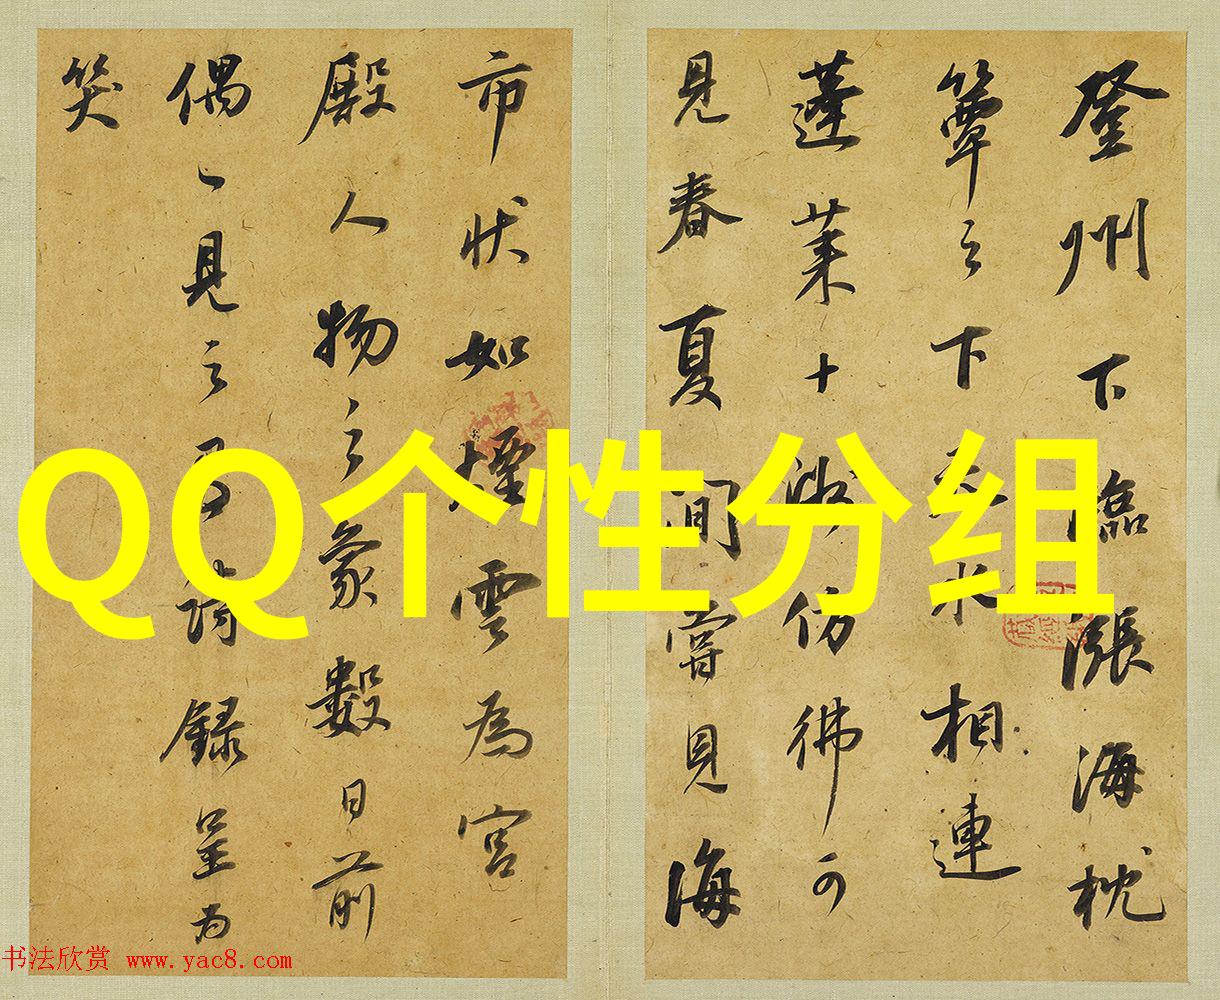 登州下臨漲海枕
簟之下天水相連
蓬萊十洲仿彿可
見春夏間嘗見海
市狀如煙雲為宮
殿人物之象數日前
偶見之詩錄呈為
笑
QQ个性分组
书法欣赏 www.yac8.com